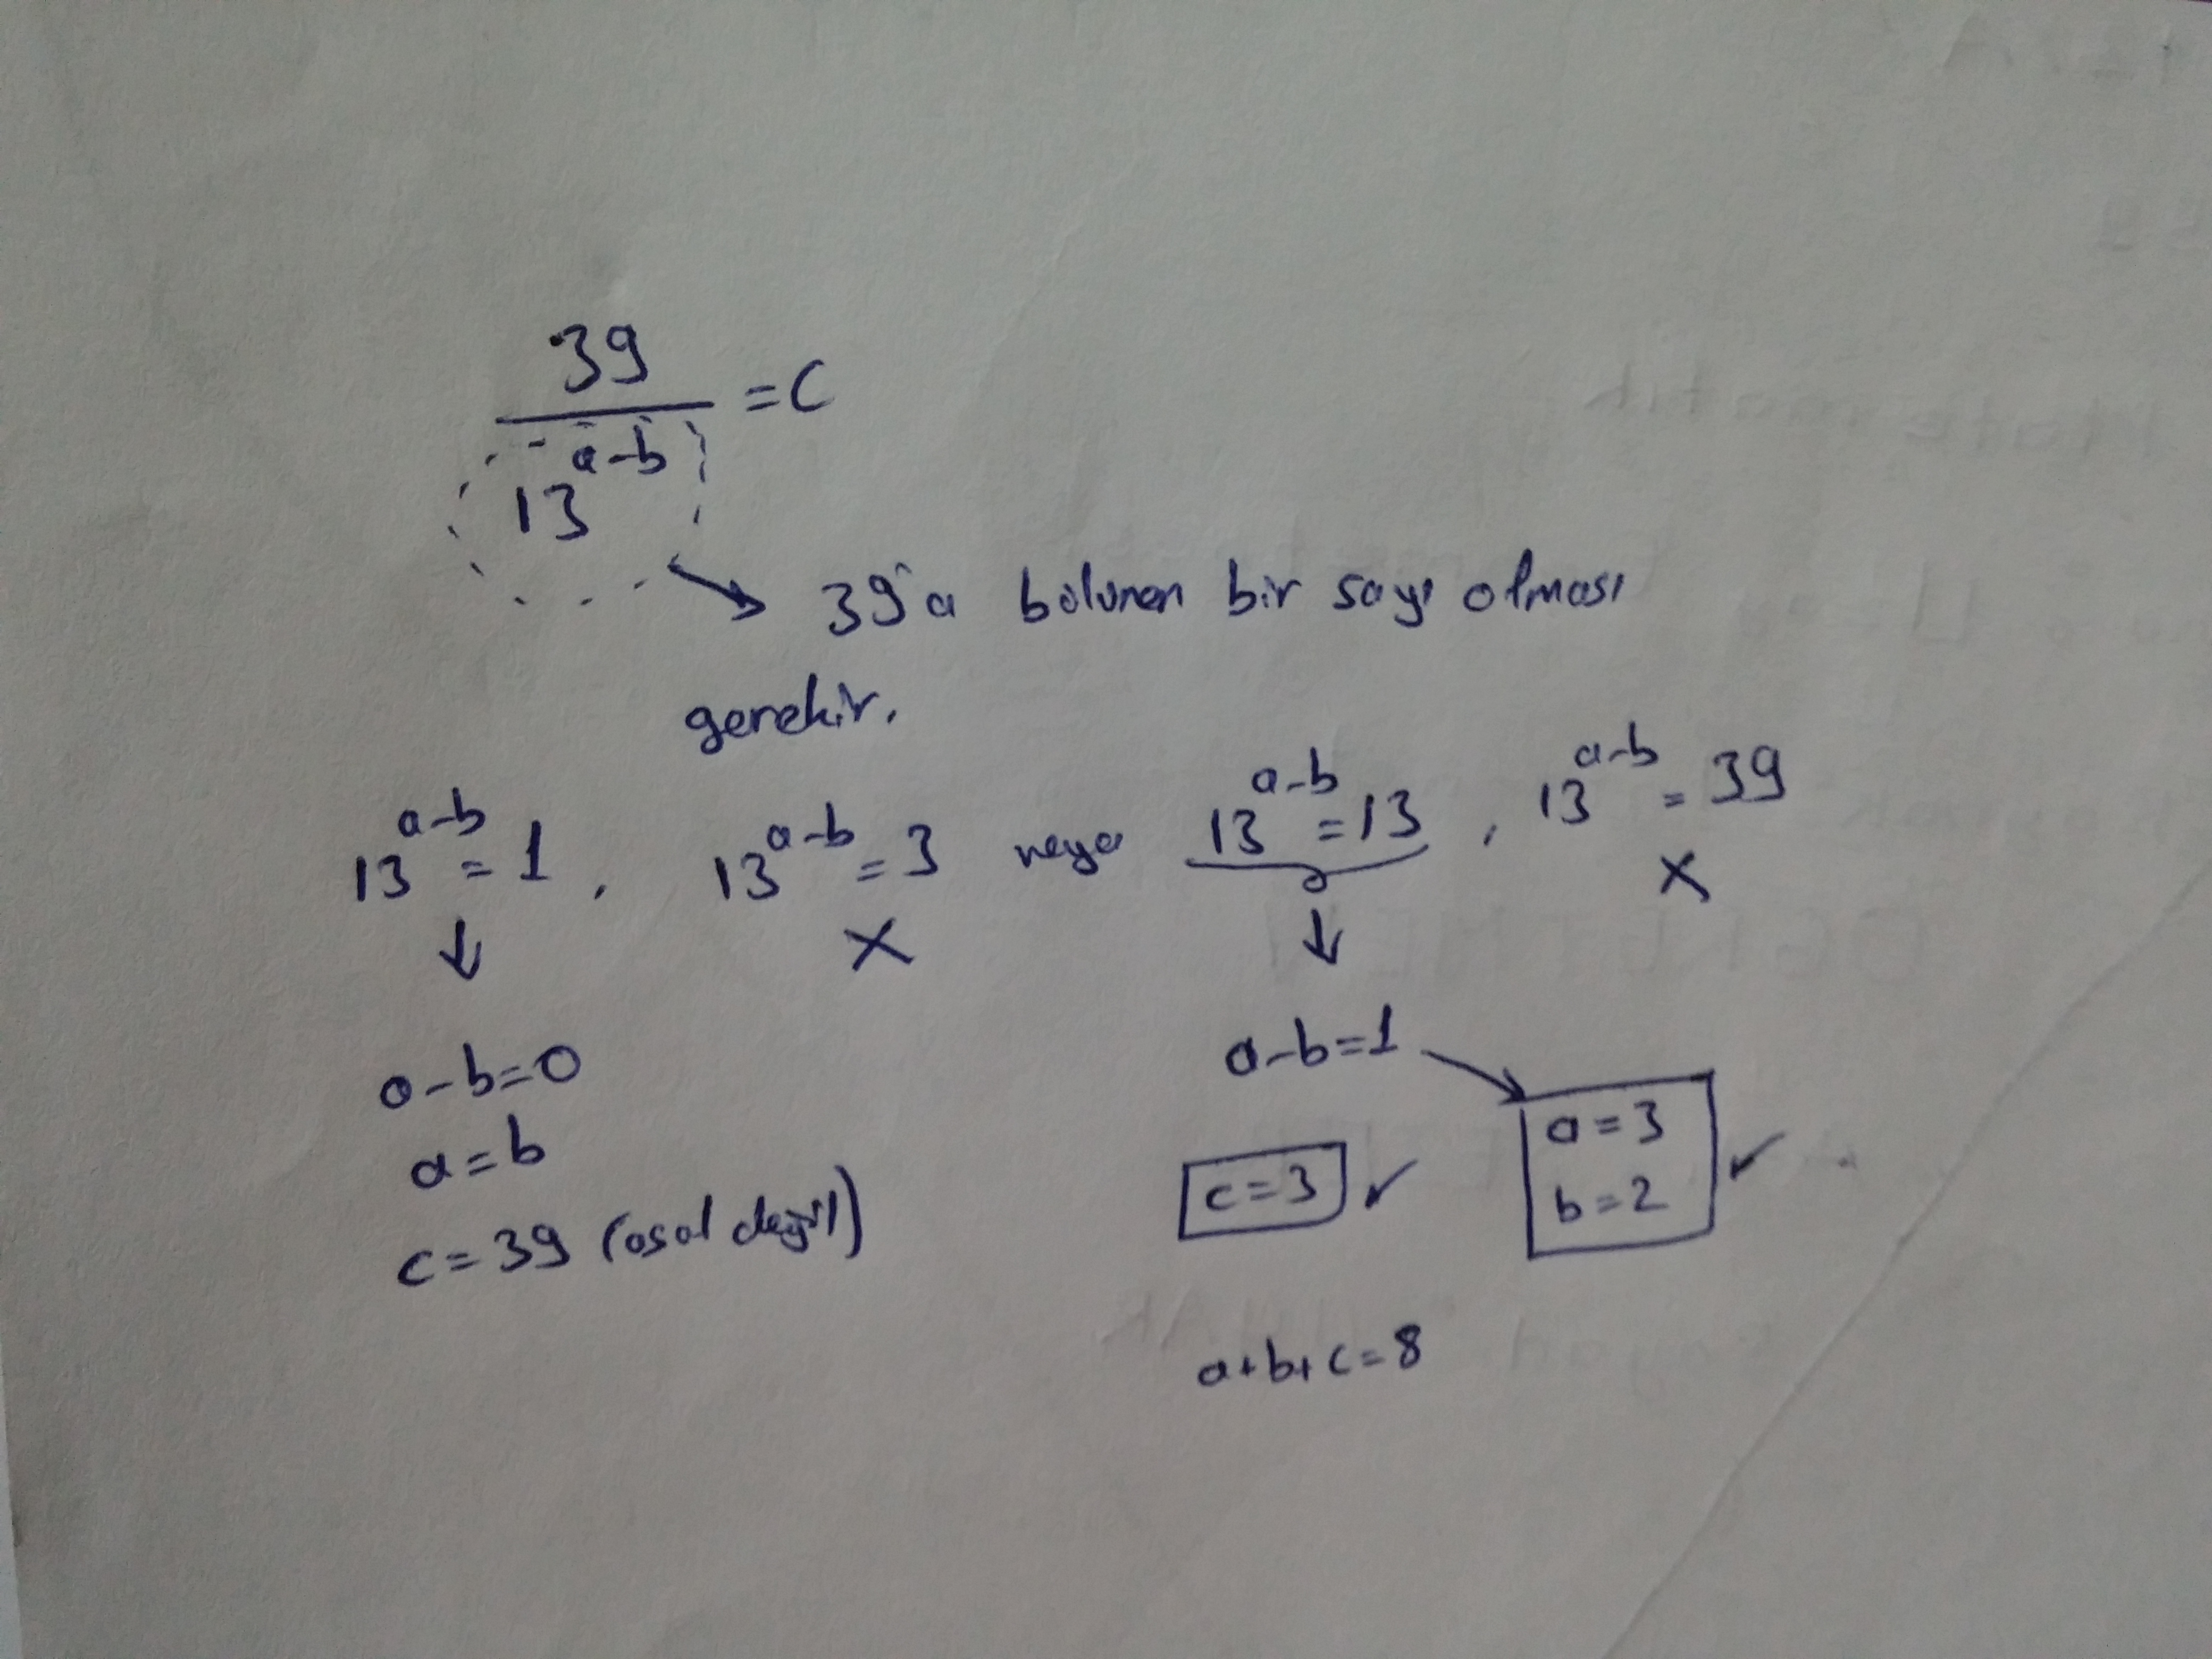 39
─── = C
13^(a-b)
39'a bölünen bir sayı olması
gerekir.
13^(a-b) = 1, 13^(a-b) = 3 veya 13^(a-b) = 13, 13^(a-b) = 39
↓ X ↓ X
a-b=0
a=b
c=39 (asal değil)
a-b=1 →
a=3
b=2 ✓
c=3 ✓
a+b+c=8